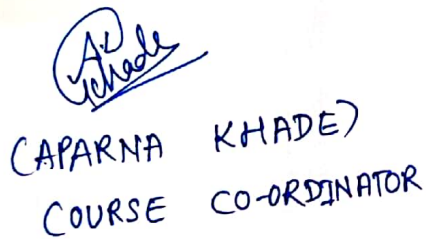 A.D
Khade
(APARNA KHADE)
COURSE CO-ORDINATOR